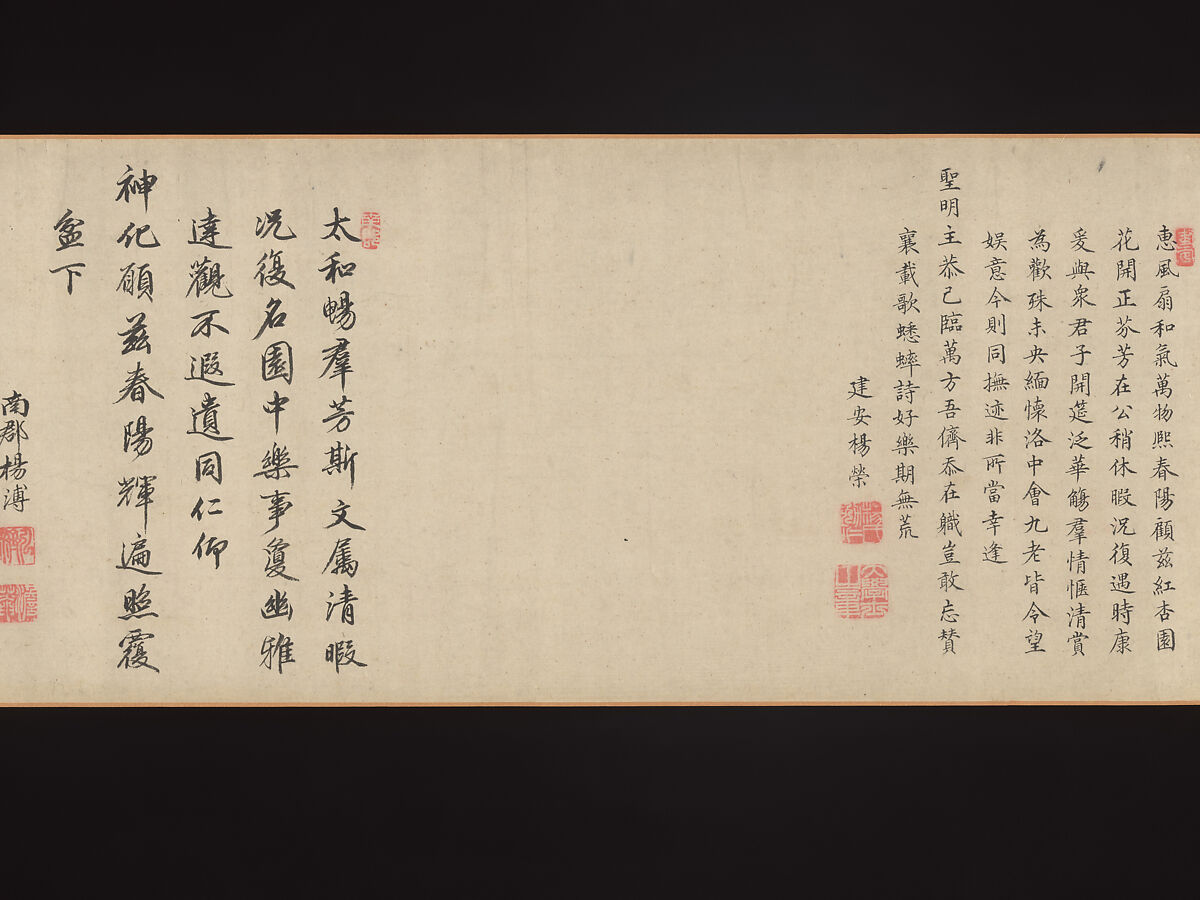 惠風扇和氣萬物熙春陽顧茲紅杏園
花開正芬芳在公稍休暇况復遇時康
爰與衆君子開筵泛華觴羣情愜清賞
為歡殊未央緬懷洛中會九老皆令望
娱意今則同撫迹非所當幸逢
聖明主恭己臨萬方吾儕忝在職豈敢忘賛
襄載歌蟋蟀詩好樂期無荒
建安楊榮
太和暢羣芳斯文属清暇
况復名園中樂事夐幽雅
達觀不遐遺同仁仰
神化願茲春陽輝遍照覆
盆下
南郡楊溥